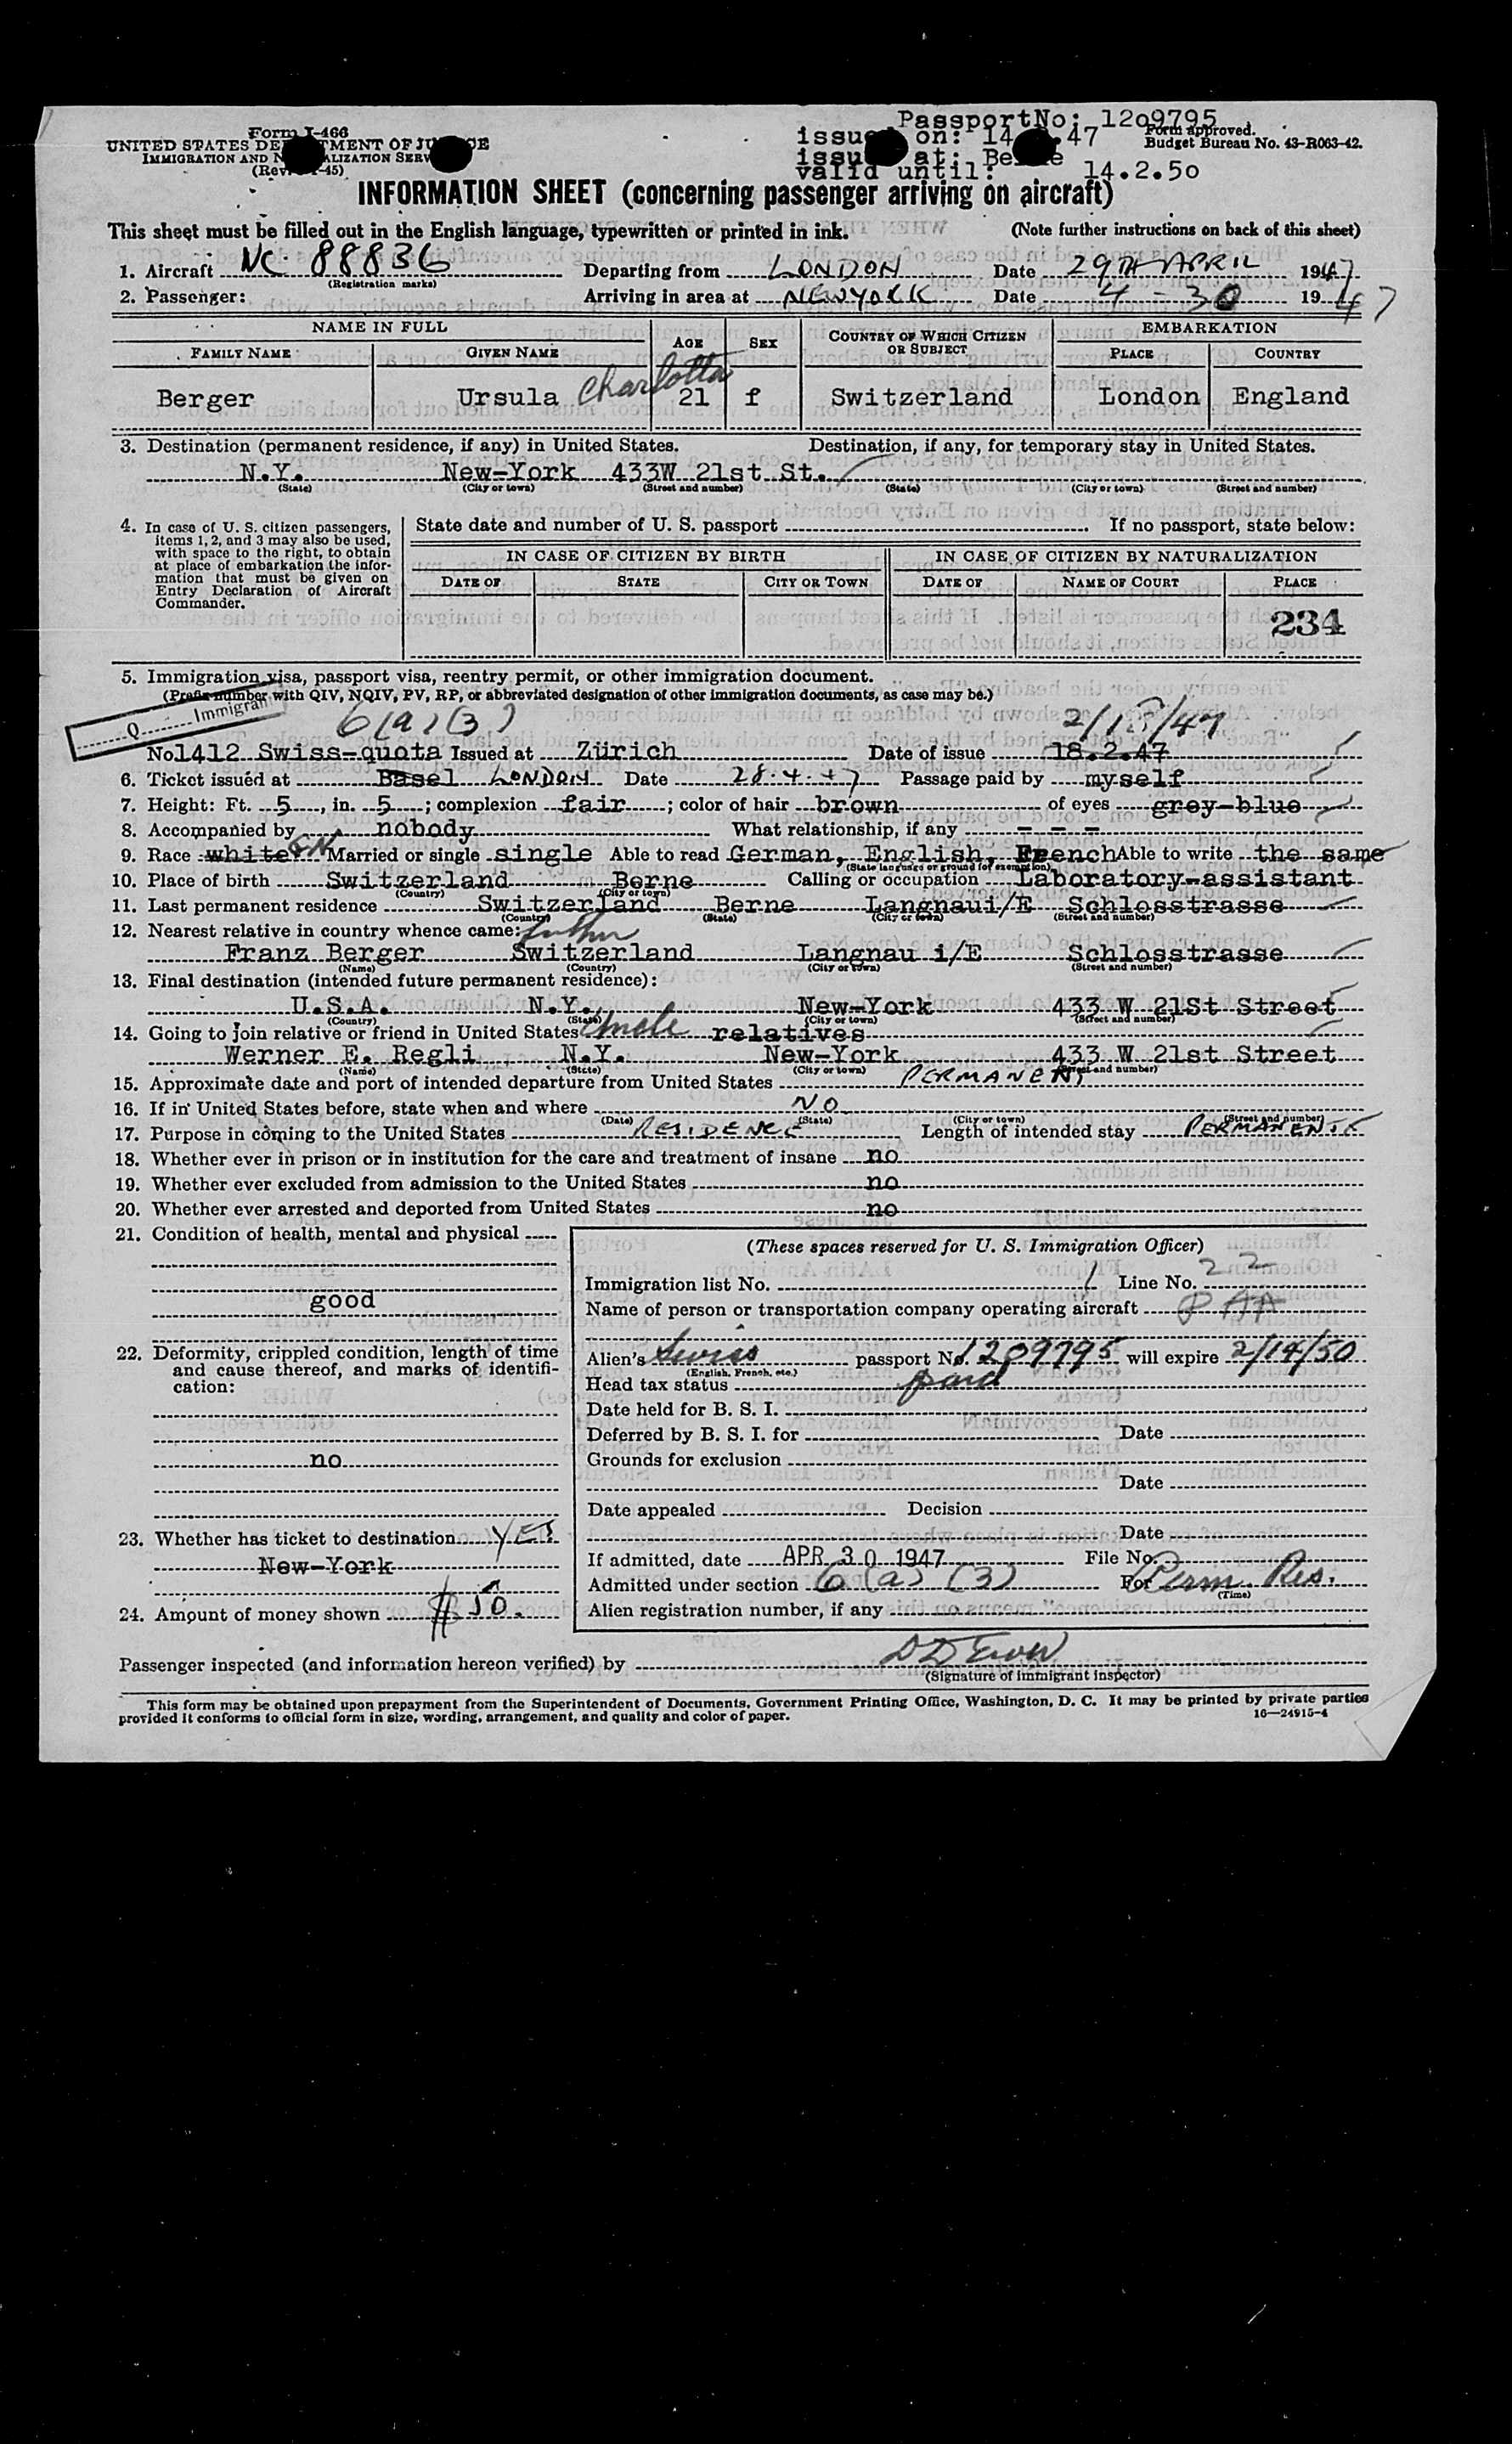 PassportNo: 12o9795
Form I-466
UNITED STATES DEPARTMENT OF JUSTICE
IMMIGRATION AND NATURALIZATION SERVICE
issued on: 14 .47
Form approved.
Budget Bureau No. 43-R063-42.
issued at: Berne
valid until: 14.2.5o
INFORMATION SHEET (concerning passenger arriving on aircraft)
This sheet must be filled out in the English language, typewritten or printed in ink. (Note further instructions on back of this sheet)
1. Aircraft NC. 88836 Departing from LONDON Date 29TH APRIL 1947
(Registration marks)
2. Passenger: Arriving in area at NEWYORK Date 4-30 1947
NAME IN FULL AGE SEX COUNTRY OF WHICH CITIZEN OR SUBJECT EMBARKATION
FAMILY NAME GIVEN NAME PLACE COUNTRY
Berger Ursula Charlotta 21 f Switzerland London England
3. Destination (permanent residence, if any) in United States. Destination, if any, for temporary stay in United States.
N.Y. New-York 433W 21st St.
(State) (City or town) (Street and number) (State) (City or town) (Street and number)
4. In case of U. S. citizen passengers, items 1, 2, and 3 may also be used, with space to the right, to obtain at place of embarkation the information that must be given on Entry Declaration of Aircraft Commander.
State date and number of U. S. passport If no passport, state below:
IN CASE OF CITIZEN BY BIRTH IN CASE OF CITIZEN BY NATURALIZATION
DATE OF STATE CITY OR TOWN DATE OF NAME OF COURT PLACE
234
5. Immigration visa, passport visa, reentry permit, or other immigration document.
(Prefix number with QIV, NQIV, PV, RP, or abbreviated designation of other immigration documents, as case may be.)
Q Immigrant
6(a)(3)
No1412 Swiss-quota Issued at Zürich Date of issue 18.2.47
6. Ticket issued at Basel LONDON Date 28.4.47 Passage paid by myself
7. Height: Ft. 5, in. 5; complexion fair; color of hair brown of eyes grey-blue
8. Accompanied by nobody What relationship, if any - - -
9. Race white Married or single single Able to read German, English, French Able to write the same
(State language or ground for exemption)
10. Place of birth Switzerland Berne Calling or occupation Laboratory-assistant
(Country) (City or town)
11. Last permanent residence Switzerland Berne Langnaui/E Schlosstrasse
(Country) (State) (City or town) (Street and number)
12. Nearest relative in country whence came: father
Franz Berger Switzerland Langnau i/E Schlosstrasse
(Name) (Country) (City or town) (Street and number)
13. Final destination (intended future permanent residence):
U.S.A. N.Y. New-York 433 W 21St Street
(Country) (State) (City or town) (Street and number)
14. Going to join relative or friend in United States Uncle relatives
Werner E. Regli N.Y. New-York 433 W 21st Street
(Name) (State) (City or town) (Street and number)
15. Approximate date and port of intended departure from United States PERMANENT
16. If in United States before, state when and where NO
(Date) (State) (City or town) (Street and number)
17. Purpose in coming to the United States RESIDENCE Length of intended stay PERMANENTE
18. Whether ever in prison or in institution for the care and treatment of insane no
19. Whether ever excluded from admission to the United States no
20. Whether ever arrested and deported from United States no
21. Condition of health, mental and physical
good
22. Deformity, crippled condition, length of time and cause thereof, and marks of identification:
no
23. Whether has ticket to destination YES
New-York
24. Amount of money shown
(These spaces reserved for U. S. Immigration Officer)
Immigration list No. 1 Line No. 22
Name of person or transportation company operating aircraft PAA
Alien's Swiss passport No. 1209795 will expire 2/14/50
(English, French, etc.)
Head tax status paid
Date held for B. S. I.
Deferred by B. S. I. for Date
Grounds for exclusion
Date
Date appealed Decision
Date
If admitted, date APR 30 1947 File No.
Admitted under section 6(a)(3) For Perm. Res.
(Time)
Alien registration number, if any
Passenger inspected (and information hereon verified) by
(Signature of immigrant inspector)
This form may be obtained upon prepayment from the Superintendent of Documents, Government Printing Office, Washington, D. C. It may be printed by private parties
provided it conforms to official form in size, wording, arrangement, and quality and color of paper. 16—24915-4